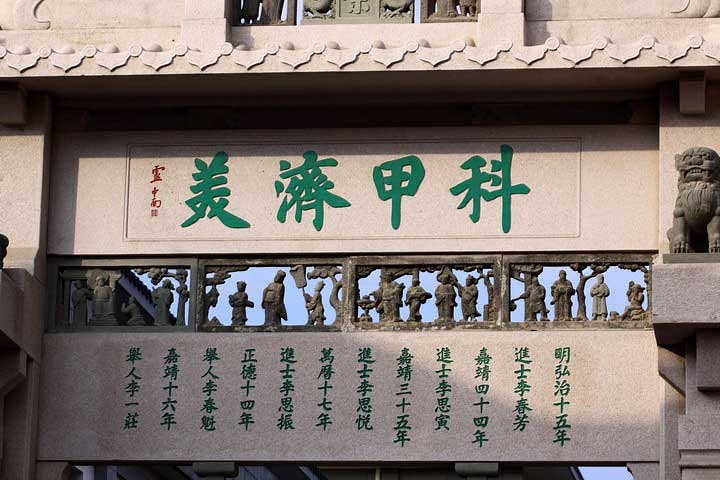 科甲濟美
盧中南
明弘治十五年
進士李春芳
嘉靖四十四年
進士李思寅
嘉靖三十五年
進士李思悅
萬曆十七年
進士李思振
正德十四年
舉人李春魁
嘉靖十六年
舉人李一莊